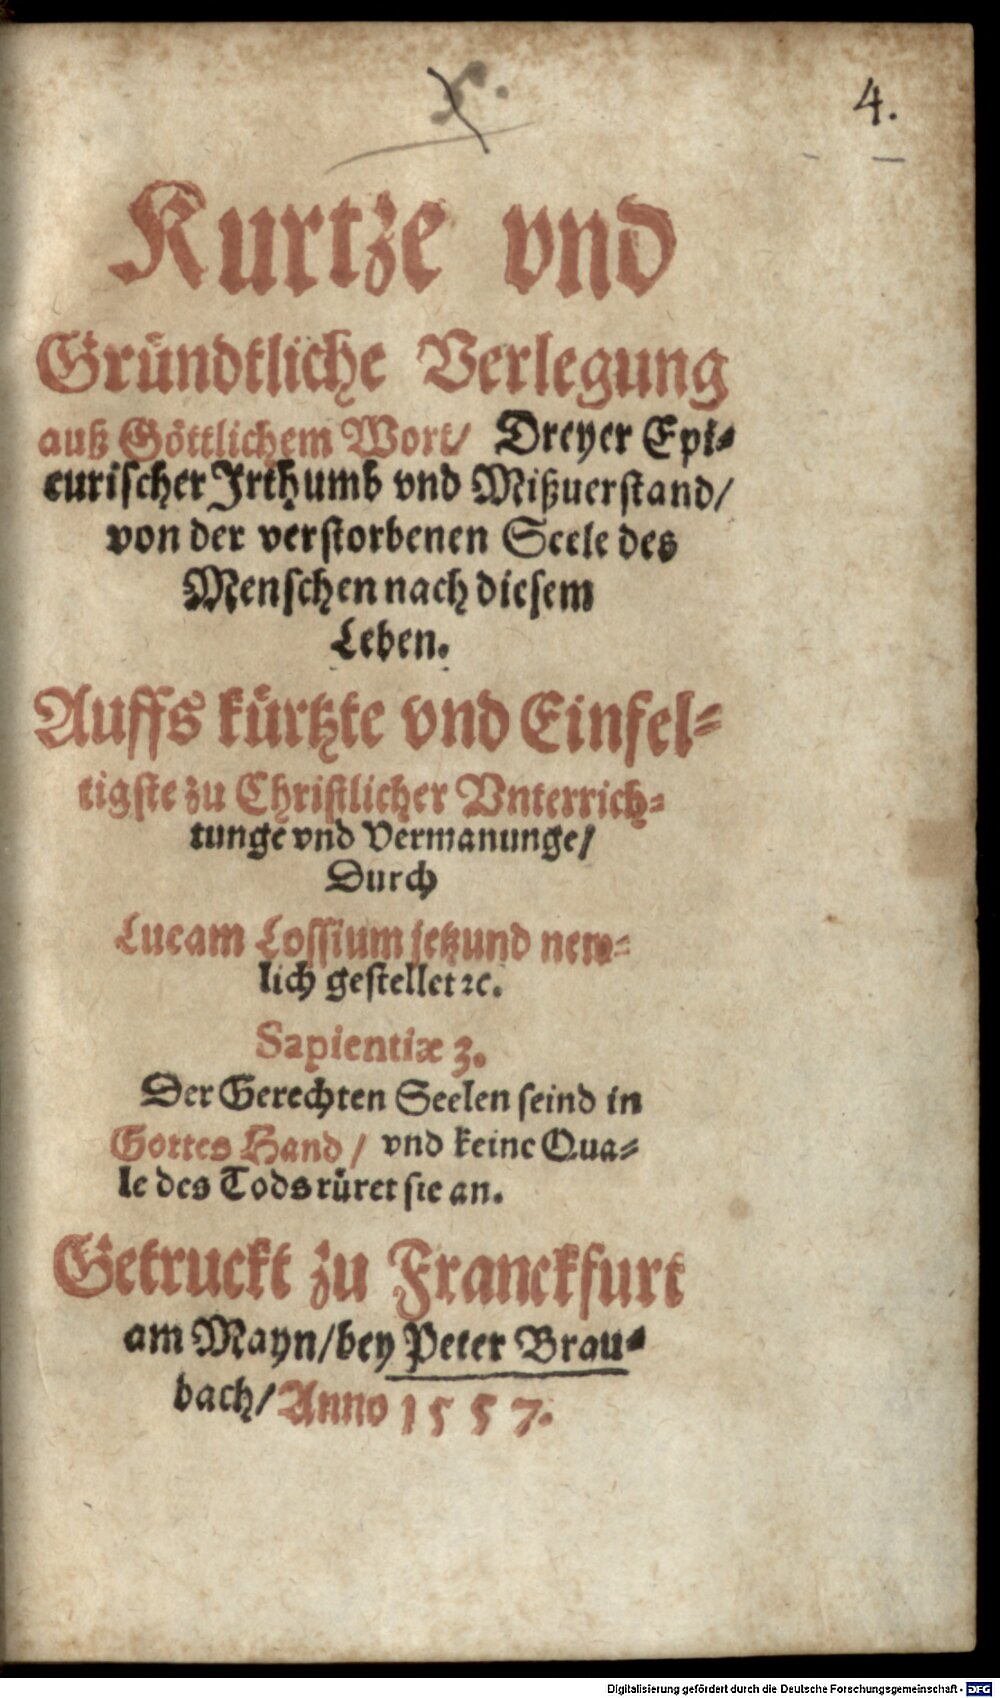 4.
Kurtze vnd
Gründtliche Verlegung
auß Göttlichem Wort/ Dreyer Epi⸗
curischer Irthumb vnd Mißuerstand/
von der verstorbenen Seele des
Menschen nach diesem
Leben.
Auffs kürtzte vnd Einfel⸗
tigste zu Christlicher Vnterrich⸗
tunge vnd Vermanunge/
Durch
Lucam Lossium jetzund new⸗
lich gestellet ꝛc.
Sapientiæ 3.
Der Gerechten Seelen seind in
Gottes Hand/ vnd keine Qua⸗
le des Tods rüret sie an.
Getruckt zu Franckfurt
am Mayn/bey Peter Brau⸗
bach/ Anno 1557.
Digitalisierung gefördert durch die Deutsche Forschungsgemeinschaft - DFG